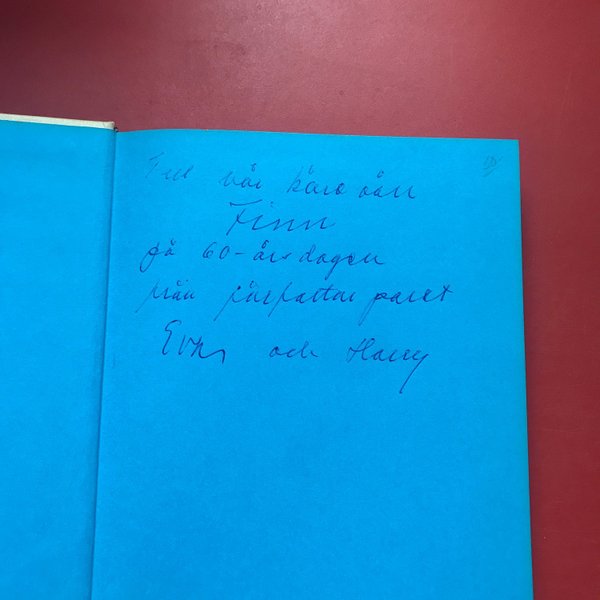 Till vår käre vän
Finn
på 60-årsdagen
från författarparet
och Harry